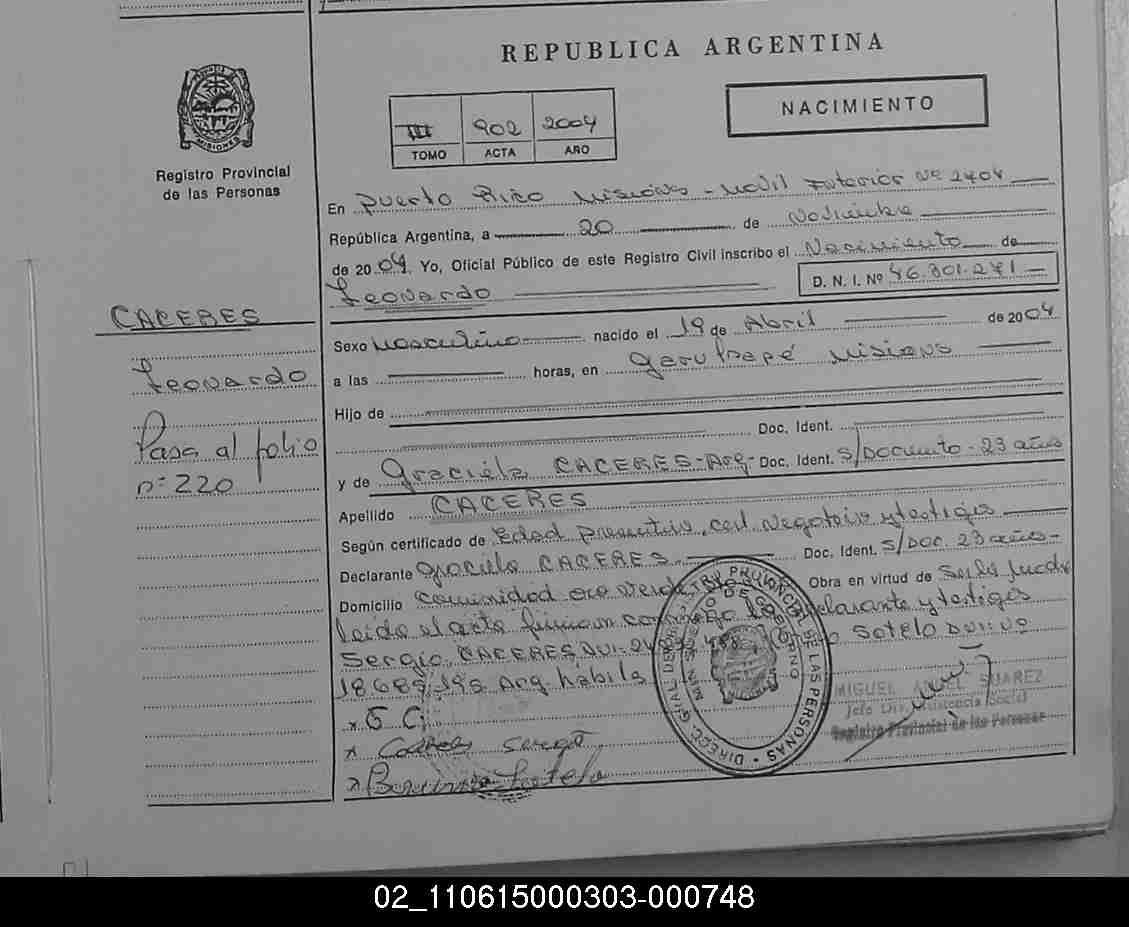 REPUBLICA ARGENTINA
NACIMIENTO
III 902 2004
TOMO ACTA AÑO
MISIONES
Registro Provincial
de las Personas
CACERES
Leonardo
Pasa al folio
nº 220
En Puerto Rico Misiones - Movil Interior Nº 2404
República Argentina, a 20 de Noviembre
de 2004. Yo, Oficial Público de este Registro Civil inscribo el Nacimiento de
Leonardo D. N. I. Nº 46.301.271
Sexo Masculino nacido el 19 de Abril de 2004
a las horas, en Misiones
Hijo de
Doc. Ident.
y de Graciela CACERES - Arg - Doc. Ident. S/Documento - 23 años
Apellido CACERES
Según certificado de Edad Presuntiva, cert. Negativo y testigos
Declarante Graciela CACERES Doc. Ident. S/Doc. 23 años -
Domicilio Comunidad Obra en virtud de
Leido el acta firman conmigo la declarante y testigos
Sergio CACERES DNI: Sotelo DNI: Nº
18689195 Arg. habils
x G C
x Caceres Sergio
x Sotelo
MIGUEL ANGEL SUAREZ
Jefe Div. Asistencia Social
Registro Provincial de las Personas
DIRECC. GRAL. DEL REGISTRO PROVINCIAL DE LAS PERSONAS
MINISTERIO DE GOBIERNO
02_110615000303-000748